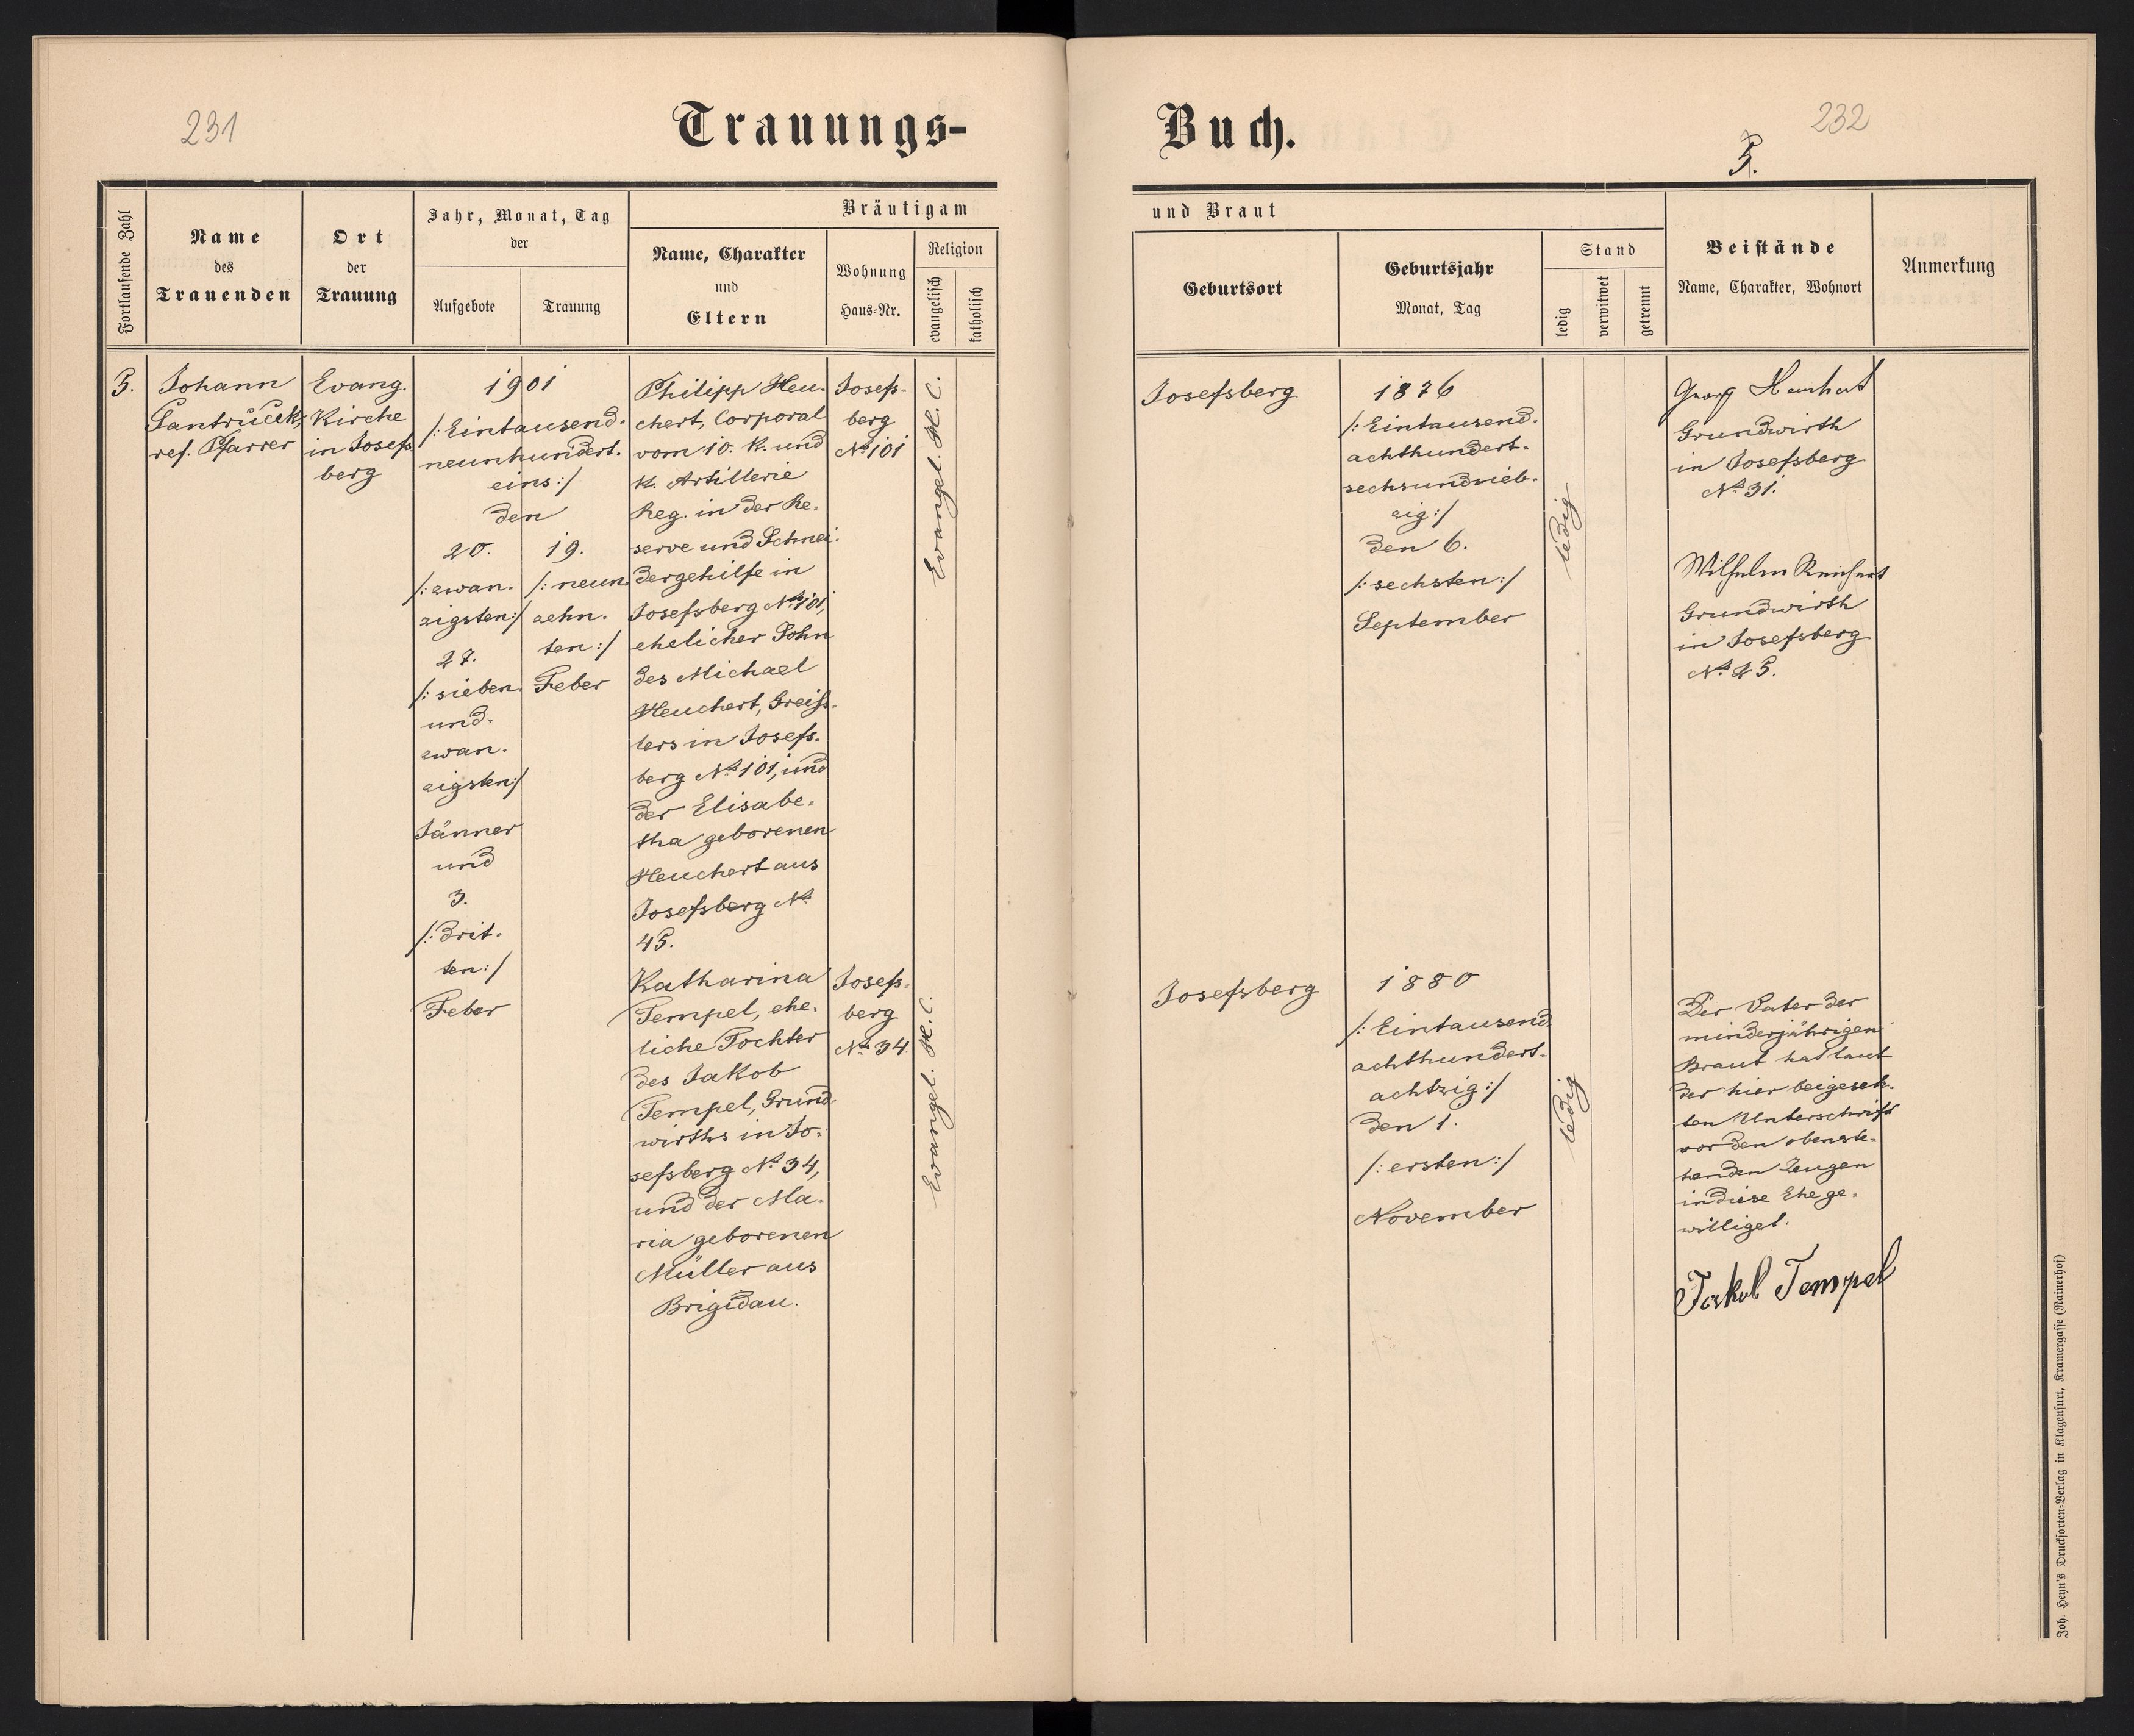 231
Trauungs-
Fortlaufende Zahl
Name
des
Trauenden
Ort
der
Trauung
Jahr, Monat, Tag
der
Aufgebote
Trauung
Bräutigam
Name, Charakter
und
Eltern
Wohnung
Haus-Nr.
Religion
evangelisch
katholisch
5.
Johann
Santrůček,
ref. Pfarrer
Evang.
Kirche
in Josefs
berg
1901
/:Eintausend-
neunhundert-
eins:/
den
20.
/:zwan-
zigsten:/
27.
/:sieben
und-
zwan-
zigsten:/
Jänner
und
3.
/:drit-
ten:/
Feber
19.
/:neun-
zehn-
ten:/
Feber
Philipp Heu-
chert, Corporal
vom 10. K. und
K. Artillerie
Reg. in der Re-
serve und Schnei-
dergehilfe in
Josefsberg No 101,
ehelicher Sohn
des Michael
Heuchert, Greiss-
lers in Josefs-
berg No 101, und
der Elisabe-
tha geborenen
Heuchert aus
Josefsberg No
45.
Josefs-
berg
No 101
Evangel. H. C.
Katharina
Tempel, ehe-
liche Tochter
des Jakob
Tempel, Grund-
wirths in Jo-
sefsberg No 34,
und der Ma-
ria geborenen
Müller aus
Brigidau.
Josefs-
berg
No 34.
Evangel. H. C.
Buch.
232
5.
und Braut
Geburtsort
Geburtsjahr
Monat, Tag
Stand
ledig
verwitwet
getrennt
Beistände
Name, Charakter, Wohnort
Anmerkung
Josefsberg
1876
/:Eintausend-
achthundert-
sechsundsieb-
zig:/
den 6.
/:sechsten:/
September
ledig
Georg
Grundwirth
in Josefsberg
No 31.
Wilhelm
Grundwirth
in Josefsberg
Josefsberg
1880
/:Eintausend
achthundert-
achtzig:/
den 1.
/:ersten:/
November
ledig
Der Vater der
minderjährigen
Braut hat laut
der hier beigesetz-
ten Unterschrift
vor den obenste-
henden Zeugen
in diese Ehe ge-
williget.
Jakob Tempel
Joh. Heyn's Drucksorten-Verlag in Klagenfurt, Kramergasse (Rainerhof)